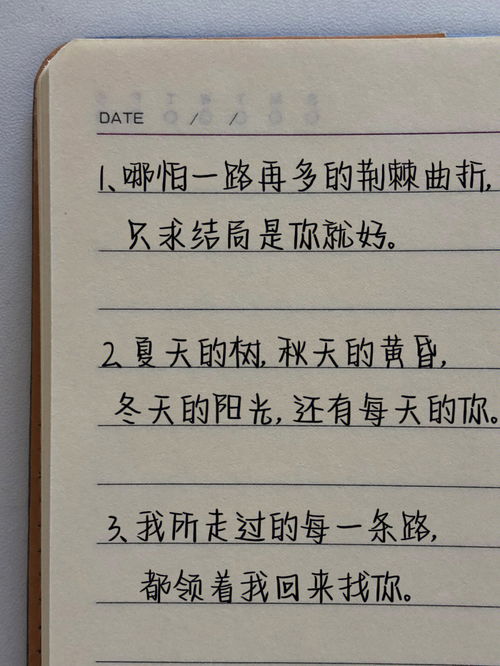 DATE / /
1、哪怕一路再多的荆棘曲折,
只求结局是你就好。
2、夏天的树,秋天的黄昏,
冬天的阳光,还有每天的你。
3、我所走过的每一条路,
都领着我回来找你。